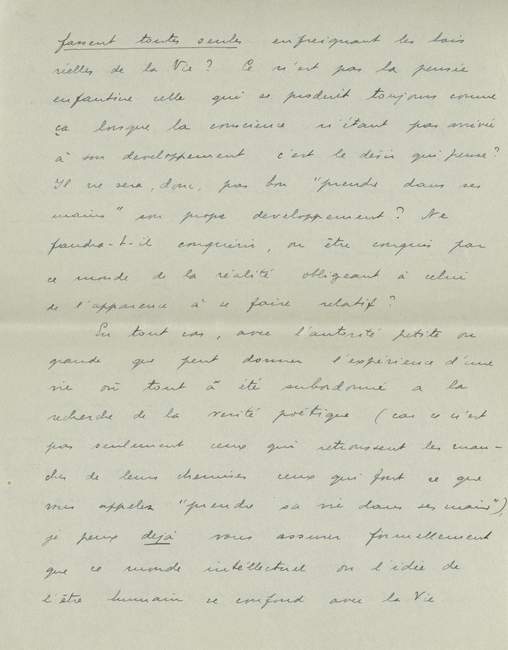 fassent toutes seules enfreignant les lois
réelles de la Vie? Ce n'est pas la pensée
enfantine celle qui se produit toujours comme
ça lorsque la conscience n'étant pas arrivée
à son developpement c'est le désir qui pense?
Il ne sera, donc, pas bon "prendre dans ses
mains" son propre developpement? Ne
faudra-t-il conquérir, ou être conquis par
ce monde de la réalité obligeant à celui
de l'apparence à se faire relatif?
En tout cas, avec l'autorité petite ou
grande que peut donner l'expérience d'une
vie où tout à été subordonné a la
recherche de la verité poétique (car ce n'est
pas seulement ceux qui retroussent les man-
ches de leurs chemises ceux qui font ce que
vous appelez "prendre sa vie dans ses mains")
je peux dejà vous assurer formellement
que ce monde intéllectuel ou l'idée de
l'être humain se confond avec la Vie